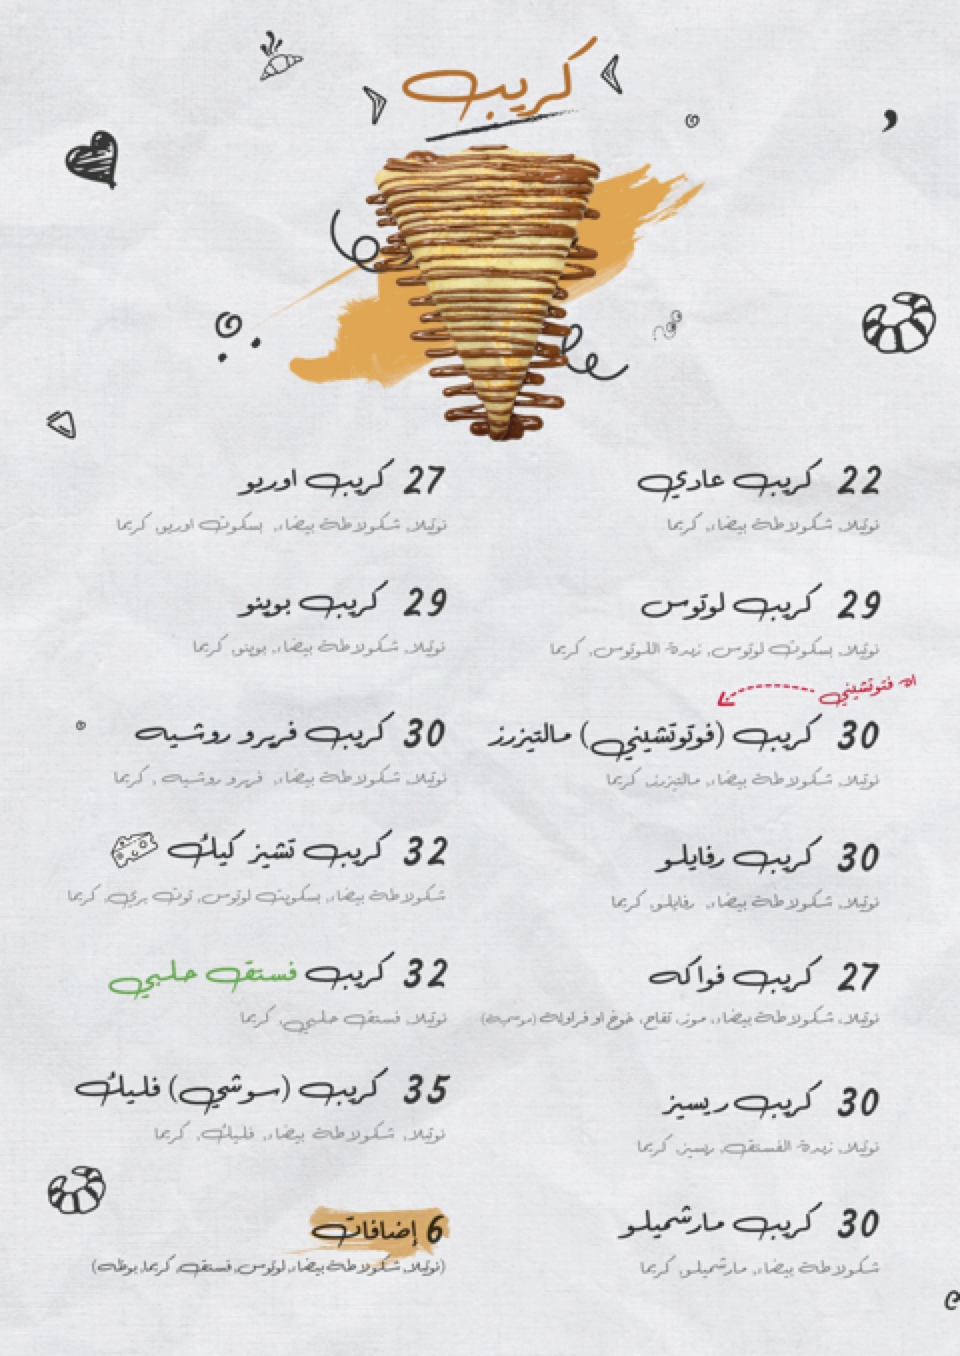 كريب
22 كريب عادي
نوتيلا، شكولاطة بيضاء، كريما
29 كريب لوتوس
نوتيلا، بسكوت لوتوس، زبدة اللوتوس، كريما
اه فتوتشيني
30 كريب (فوتوتشيني) مالتيزرز
نوتيلا، شكولاطة بيضاء، مالتيزرز، كريما
30 كريب رفايلو
نوتيلا، شكولاطة بيضاء، رفايلو، كريما
27 كريب فواكه
نوتيلا، شكولاطة بيضاء، موز، تفاح، خوخ او فراولة (موسمية)
30 كريب ريسيز
نوتيلا، زبدة الفستق، ريسيز، كريما
30 كريب مارشميلو
شكولاطة بيضاء، مارشميلو، كريما
27 كريب اوريو
نوتيلا، شكولاطة بيضاء، بسكوت اوريو، كريما
29 كريب بوينو
نوتيلا، شكولاطة بيضاء، بوينو، كريما
30 كريب فريرو روشيه
نوتيلا، شكولاطة بيضاء، فريرو روشيه ، كريما
32 كريب تشيز كيك
شكولاطة بيضاء، بسكويت لوتوس، توت بري، كريما
32 كريب فستق حلبي
نوتيلا، فستق حلبي، كريما
35 كريب (سوشي) فليك
نوتيلا، شكولاطة بيضاء، فليك، كريما
6 إضافات
(نوتيلا، شكولاطة بيضاء، لوتوس، فستق، كريما، بوظه)